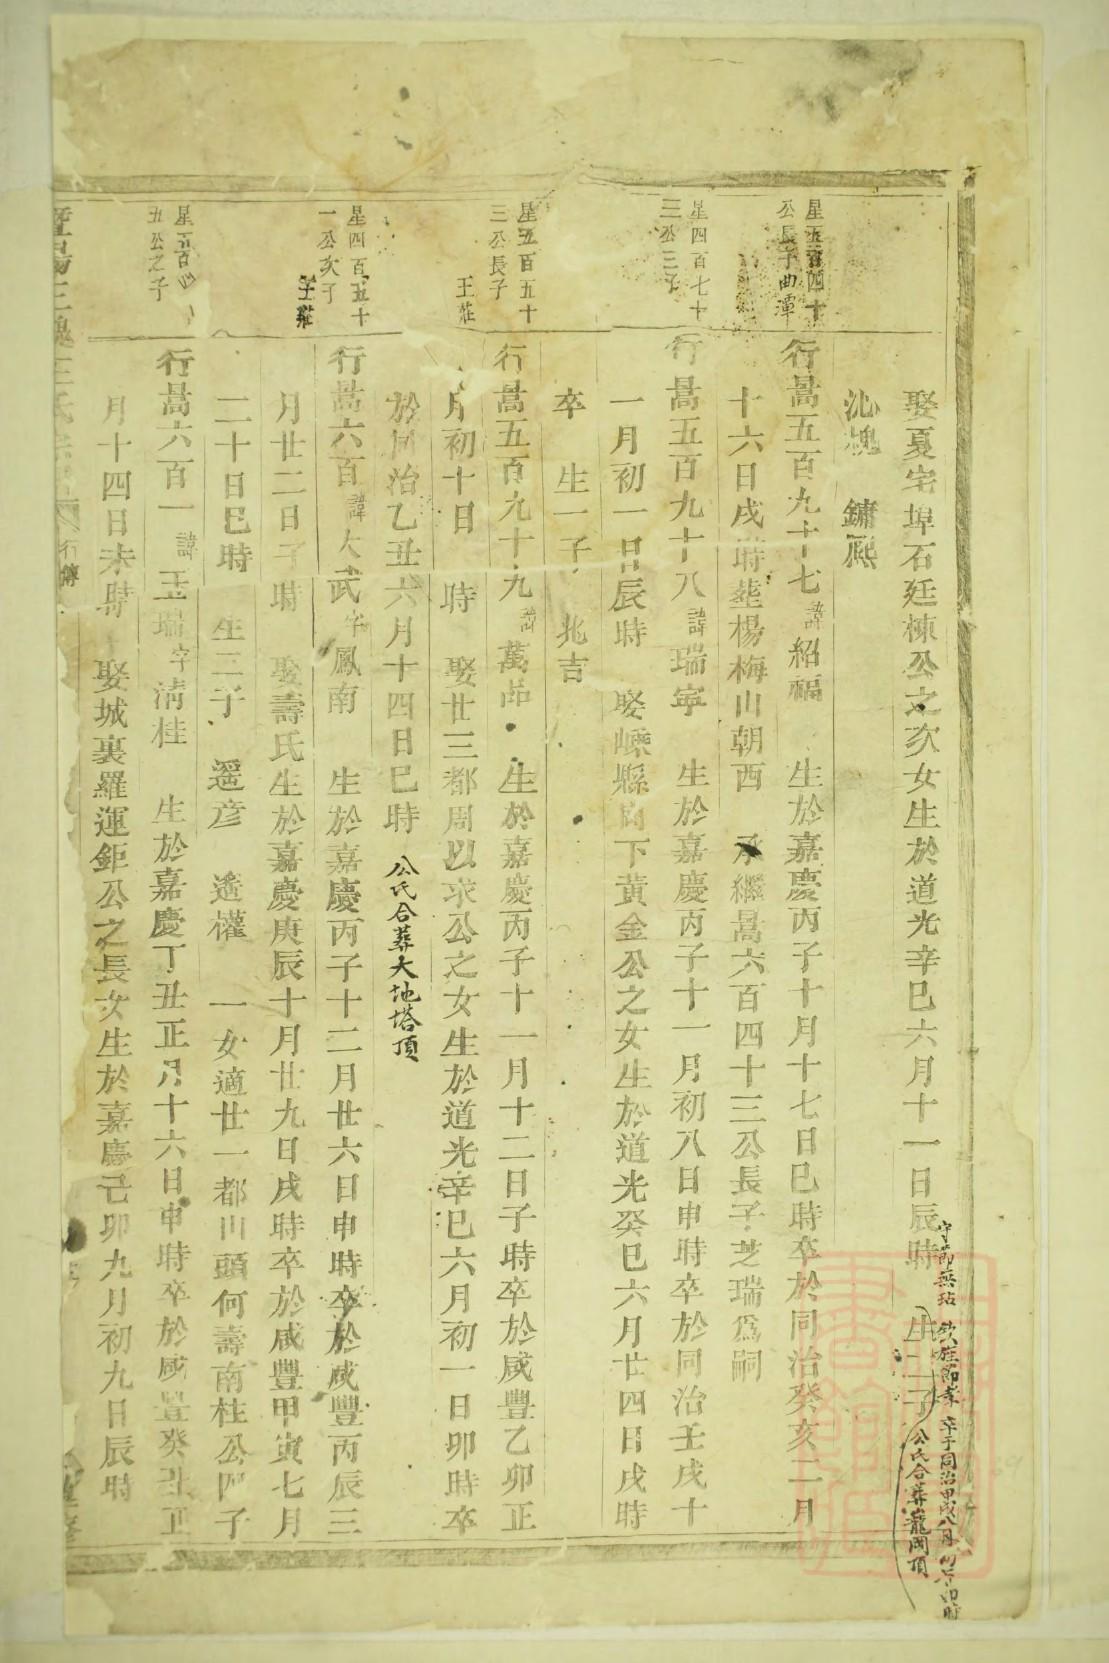 娶夏宅埠石廷棟公之次女生於道光辛巳六月十一日辰時 生二子
守節無玷 欽旌節孝 卒于同治甲戌八月
公氏合葬
頂
鏞熙
星五百四十
公長子曲潭
行暠五百九十七諱紹福 生於嘉慶丙子十月十七日巳時卒於同治癸亥二月
十六日戌時塟楊梅山朝西 承繼暠六百四十三公長子芝瑞爲嗣
星四百七十
三公三子
行暠五百九十八諱瑞寧 生於嘉慶丙子十一月初八日申時卒於同治壬戌十
一月初一日辰時 娶嵊縣 下黃金公之女生於道光癸巳六月廿四日戌時
卒 生一子 兆吉
星五百五十
三公長子
王莊
行暠五百九十九諱萬品 生於嘉慶丙子十一月十二日子時卒於咸豐乙卯正
月初十日 時 娶廿三都周以求公之女生於道光辛巳六月初一日卯時卒
於同治乙丑六月十四日巳時 公氏合葬大地塔頂
星四百五十
一公次子
王莊
行暠六百諱大武字鳳南 生於嘉慶丙子十二月廿六日申時卒於咸豐丙辰三
月廿二日子時 娶壽氏生於嘉慶庚辰十月廿九日戌時卒於咸豐甲寅七月
二十日巳時 生二子 遥彦 遥權 一女適廿一都川頭何壽南桂公四子
星五百
五公之子
行暠六百一諱玉瑞字清桂 生於嘉慶丁丑正月十六日申時卒於咸豐癸丑正
月十四日未時 娶城裏羅運鉅公之長女生於嘉慶己卯九月初九日辰時
暨陽
王氏宗譜
行傳